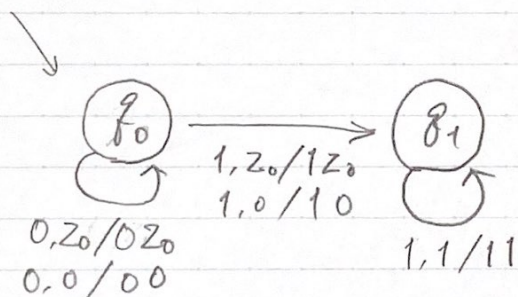 q₀
q₁
1,z₀/1z₀
1,0/10
0,z₀/0z₀
0,0/00
1,1/11